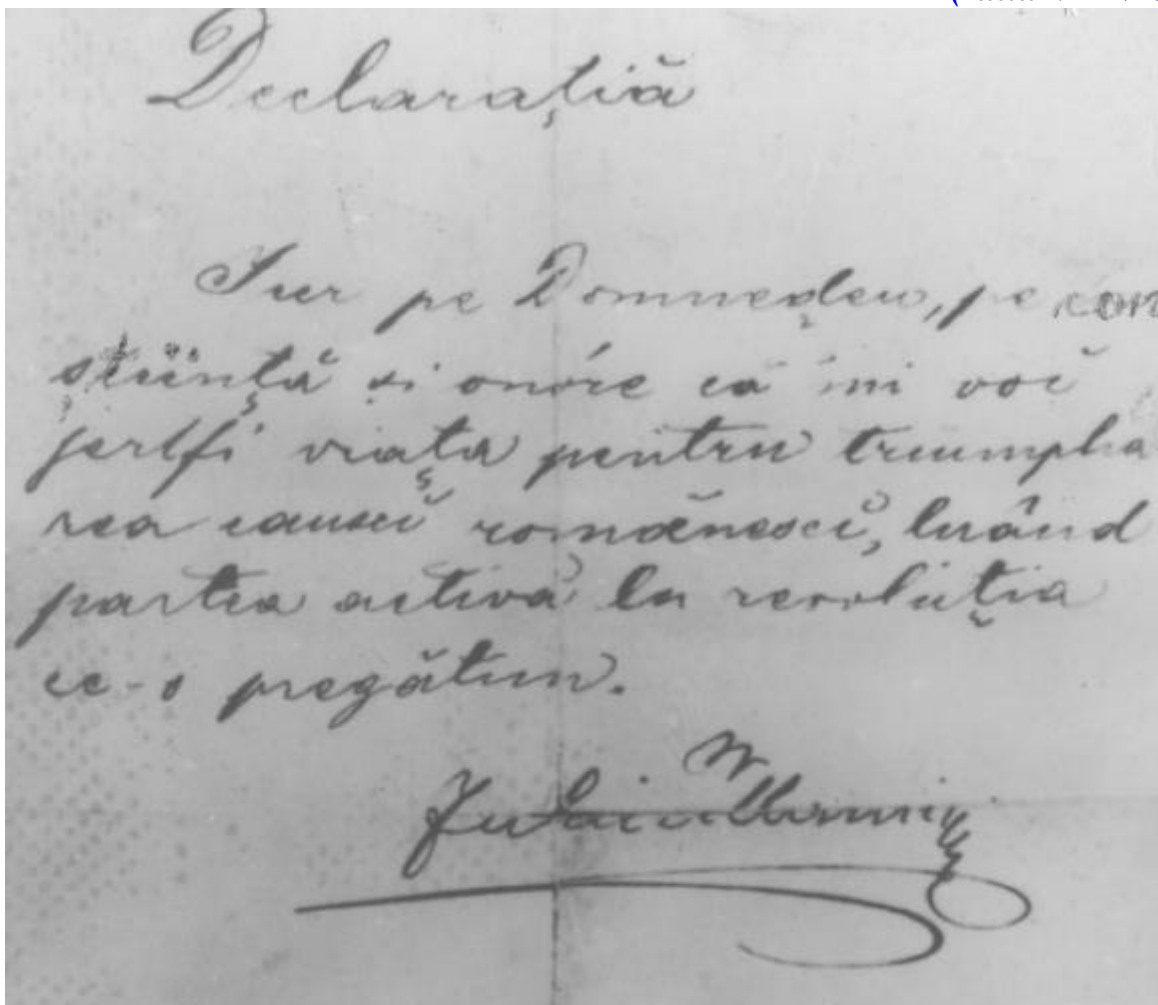 Declarațiă
Jur pe Domnedeu, pe con
știință si onóre că 'mi voĭ
jertfi viața pentru triumpha
rea causeĭ românescĭ, luând
partea activă la revoluția
ce-o pregătim.
Iuliu Maniu